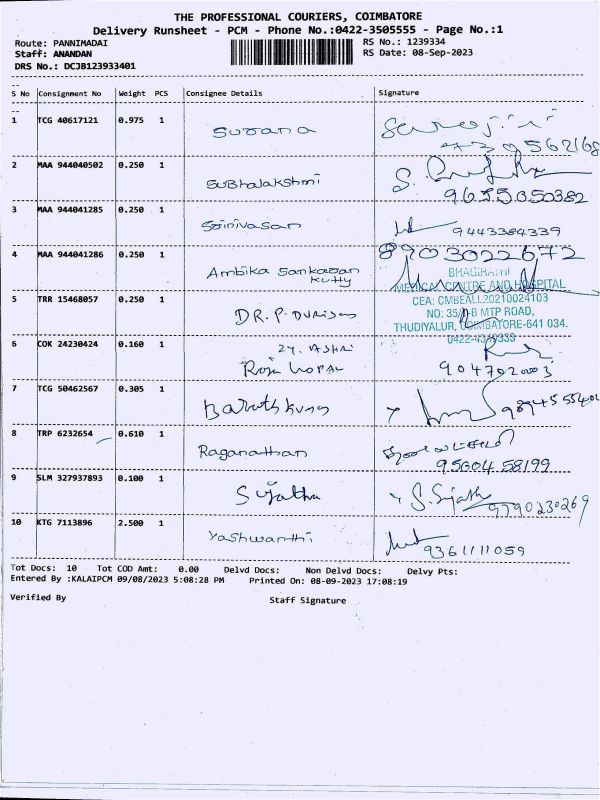 THE PROFESSIONAL COURIERS, COIMBATORE
Delivery Runsheet - PCM - Phone No.:0422-3505555 - Page No.:1
Route: PANNIMADAI RS No.: 1239334
Staff: ANANDAN RS Date: 08-Sep-2023
DRS No.: DCJB123933401
S No Consignment No Weight PCS Consignee Details Signature
1 TCG 40617121 0.975 1 Suvana
2 MAA 944040502 0.250 1 Subhalakshmi
9655650382
3 MAA 944041285 0.250 1 Srinivasan 9443384339
8903022672
4 MAA 944041286 0.250 1 Ambika Sankaran
Kutty
BHAGIRATHI
MEDICAL CENTRE AND HOSPITAL
5 TRR 15468057 0.250 1 DR. P. CEA: CMBEALL20210024103
NO: 35/ MTP ROAD,
THUDIYALUR, COIMBATORE-641 034.
0422-4349333
6 COK 24230424 0.160 1
Raja Gopal
7 TCG 50462567 0.305 1
8 TRP 6232654 0.610 1 Raganathan
95604 58199
9 SLM 327937893 0.100 1 Sujatha S. Sujath
9790230269
10 KTG 7113896 2.500 1 Yashwanthi
9361111059
Tot Docs: 10 Tot COD Amt: 0.00 Delvd Docs: Non Delvd Docs: Delvy Pts:
Entered By :KALAIPCM 09/08/2023 5:08:28 PM Printed On: 08-09-2023 17:08:19
Verified By Staff Signature